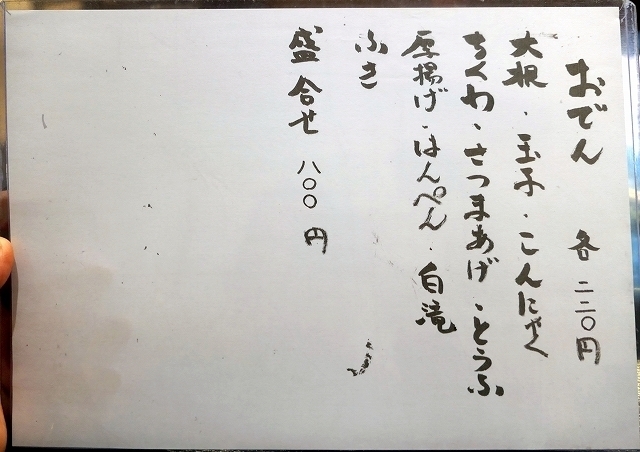 おでん 各 二二〇円
大根・玉子・こんにゃく
ちくわ・さつまあげ・とうふ
厚揚げ・はんぺん・白滝
ふき
盛合せ 八〇〇円